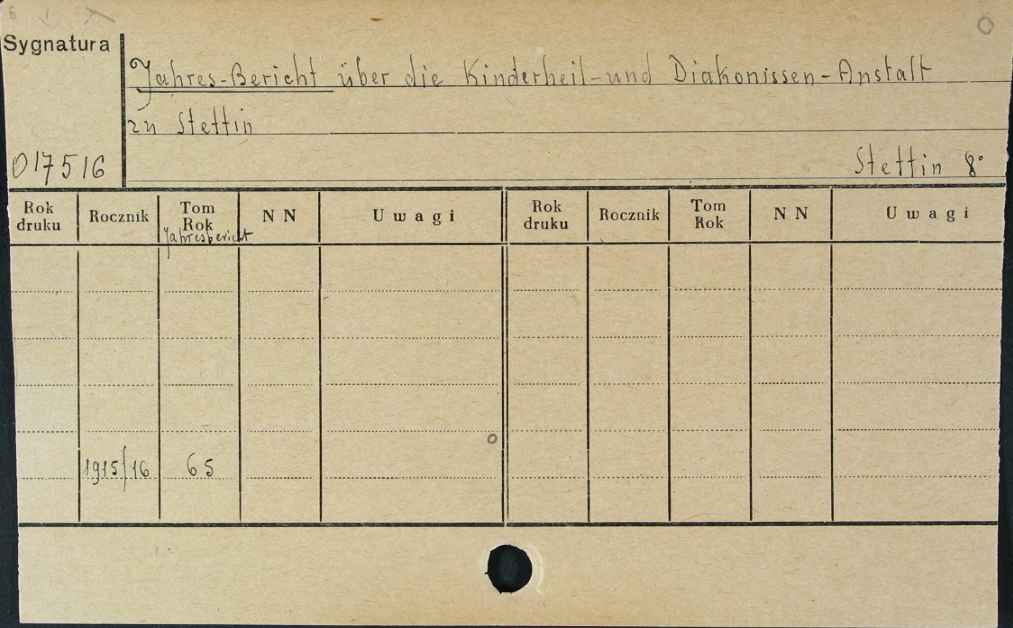 Sygnatura
Jahres-Bericht über die Kinderheil-und Diakonissen-Anstalt
zu Stettin
017516
Stettin 8°
Rok druku Rocznik Tom Rok NN Uwagi Rok druku Rocznik Tom Rok NN Uwagi
Jahresbericht
1915/16 65